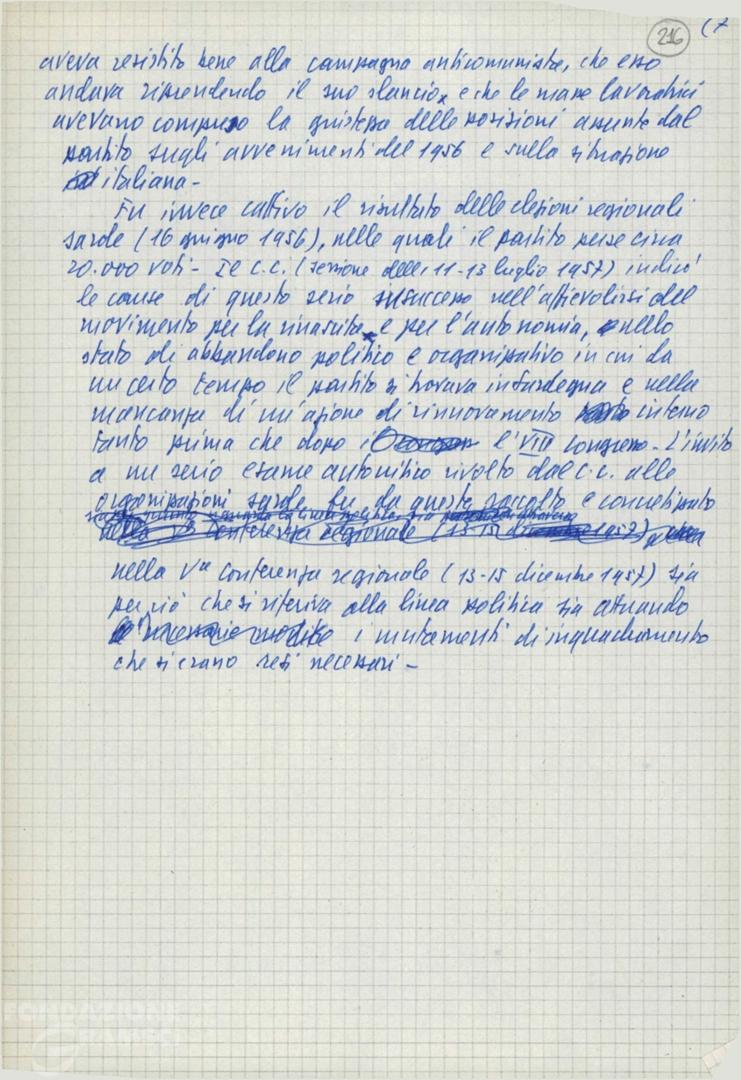 216 (7
aveva resistito bene alla campagna anticomunista, che esso
andava riprendendo il suo slancio e che le masse lavoratrici
avevano compreso la giustezza delle posizioni assunte dal
partito sugli avvenimenti del 1956 e sulla situazione
italiana -
Fu invece cattivo il risultato delle elezioni regionali
sarde (16 giugno 1956), nelle quali il partito perse circa
20.000 voti - Il C.C. (sessione dell'11-13 luglio 1957) indicò
le cause di questo serio insuccesso nell'affievolirsi del
movimento per la rinascita e per l'autonomia, nello
stato di abbandono politico e organizzativo in cui da
un certo tempo il partito si trovava in Sardegna e nella
mancanza di un'azione di rinnovamento interno
tanto prima che dopo l'VIII congresso - L'invito
a un serio esame autocritico rivolto dal C.C. alle
organizzazioni sarde fu da queste raccolto e concretizzato
conferenza regionale (13-15 1957)
nella Va conferenza regionale (13-15 dicembre 1957) sia
per ciò che si riferiva alla linea politica sia attuando
i mutamenti di inquadramento
che si erano resi necessari -
FONDAZIONE
GRAMSCI